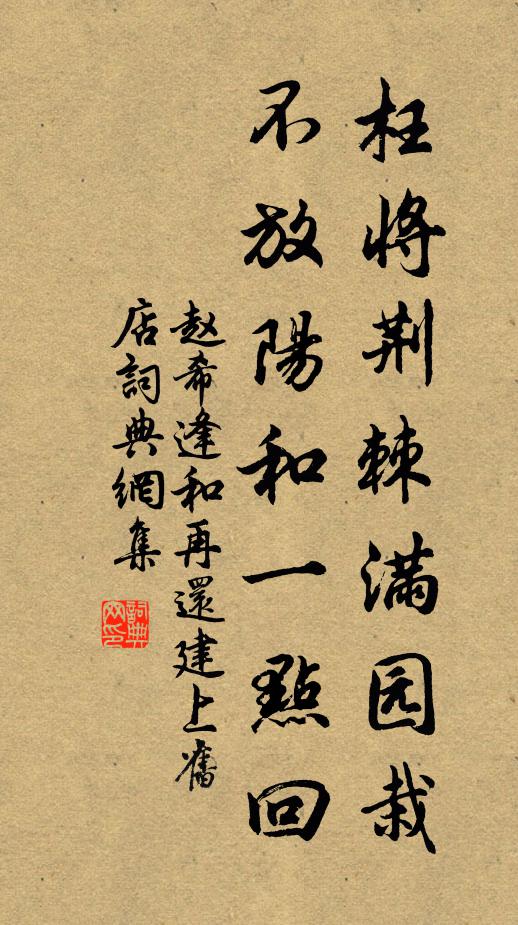 枉將荆棘满园栽
不放陽和一點回
赵希逢和再還建上舊
店詞典網集
詞典網印